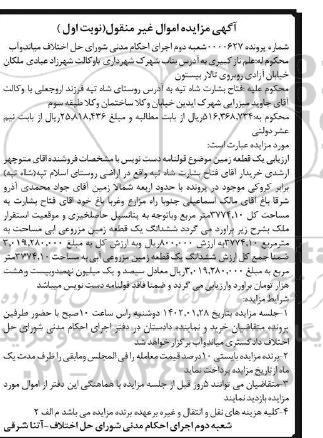 آگهی مزایده اموال غیر منقول(نوبت اول )
شماره پرونده ۰۰۰۰۶۲۷شعبه دوم اجرای احکام مدنی شورای حل اختلاف میاندوآب
محکوم له:علم ناز کبیری به آدرس بناب شهرک شهرداری باوکالت شهرزاد عبادی ملکان
خیابان آزادی روبروی تالار بیستون
محکوم علیه :فتاح بشارت شاد تپه به آدرس روستای شاد تپه فرزند اروجعلی با وکالت
آقای جاوید میرزایی شهرک ایدین خیابان وکلا ساختمان وکلا طبقه سوم
محکوم به:۵۱۶,۳۶۸,۷۳۴ریال از بابت مطالبه و مبلغ ۲۵,۸۱۸,۴۳۶ریال از بابت نیم
عشر دولتی
مورد مزایده عبارت است:
ارزیابی یک قطعه زمین موضوع قولنامه دست نویس با مشخصات فروشنده اقای منوچهر
ارشدی خریدار اقای فتاح بشارت شاد تپه واقع در اراضی روستای اسلام تپه(شاه تپه)
برابر کروکی موجود در پرونده با حدود اربعه شمالا زمین آقای جواد محمدی آذرو
شرقا باغ آقای مالک اسماعیلی جنوبا راه مزارع وغربا باغ خود اقای فتاح بشارت به
مساحت کل ۳۷۷۴,۱۰متر مربع وباتوجه به پتانسیل حاصلخیزی و موقعیت استقرار
ملک بشرح زیر برآورد می گردد ششدانگ یک قطعه زمین مزروعی ابی مساحت به
مترمربع ۳۷۷۴,۱۰به ارزش ۸۰۰,۰۰۰ریال وبه ارزش کل به مبلغ ۳,۰۱۹,۲۸۰,۰۰۰
ضمنا جمع کل ارزش ششدانگ یک قطعه زمین مزروعی آبی به مساحت ۳۷۷۴,۱۰متر
مربع به مبلغ ۳,۰۱۹,۲۸۰,۰۰۰ریال معادل سیصد و یک میلیون نهصدوبیست وهشت
هزار تومان براورد وارزیابی می گردد و ضمنا فاقد قولنامه دست نویس میباشد
شرایط مزایده:
۱-جلسه مزایده بتاریخ ۱۴۰۲,۰۱,۲۸ دوشنبه راس ساعت ۱۰صبح با حضور طرفین
پرونده متقاضیان خرید و نماینده دادستان در دفتر اجرای احکام مدنی شورای حل
اختلاف دادگستری میاندوآب برگزار خواهد شد
۲-برنده مزایده بایستی ۱۰درصد قیمت معامله را فی المجلس ومابقی را ظرف مدت یک
ماه ازتاریخ مزایده پرداخت نماید
۳-متقاضیان می توانند ۵روز قبل از جلسه مزایده با هماهنگی این دفتر از اموال مورد
مزایده بازدید نمایند
۴-کلیه هزینه های نقل و انتقال و غیره برعهده برنده مزایده می باشد م الف ۲
شعبه دوم اجرای احکام مدنی شورای حل اختلاف-آتنا شرفی